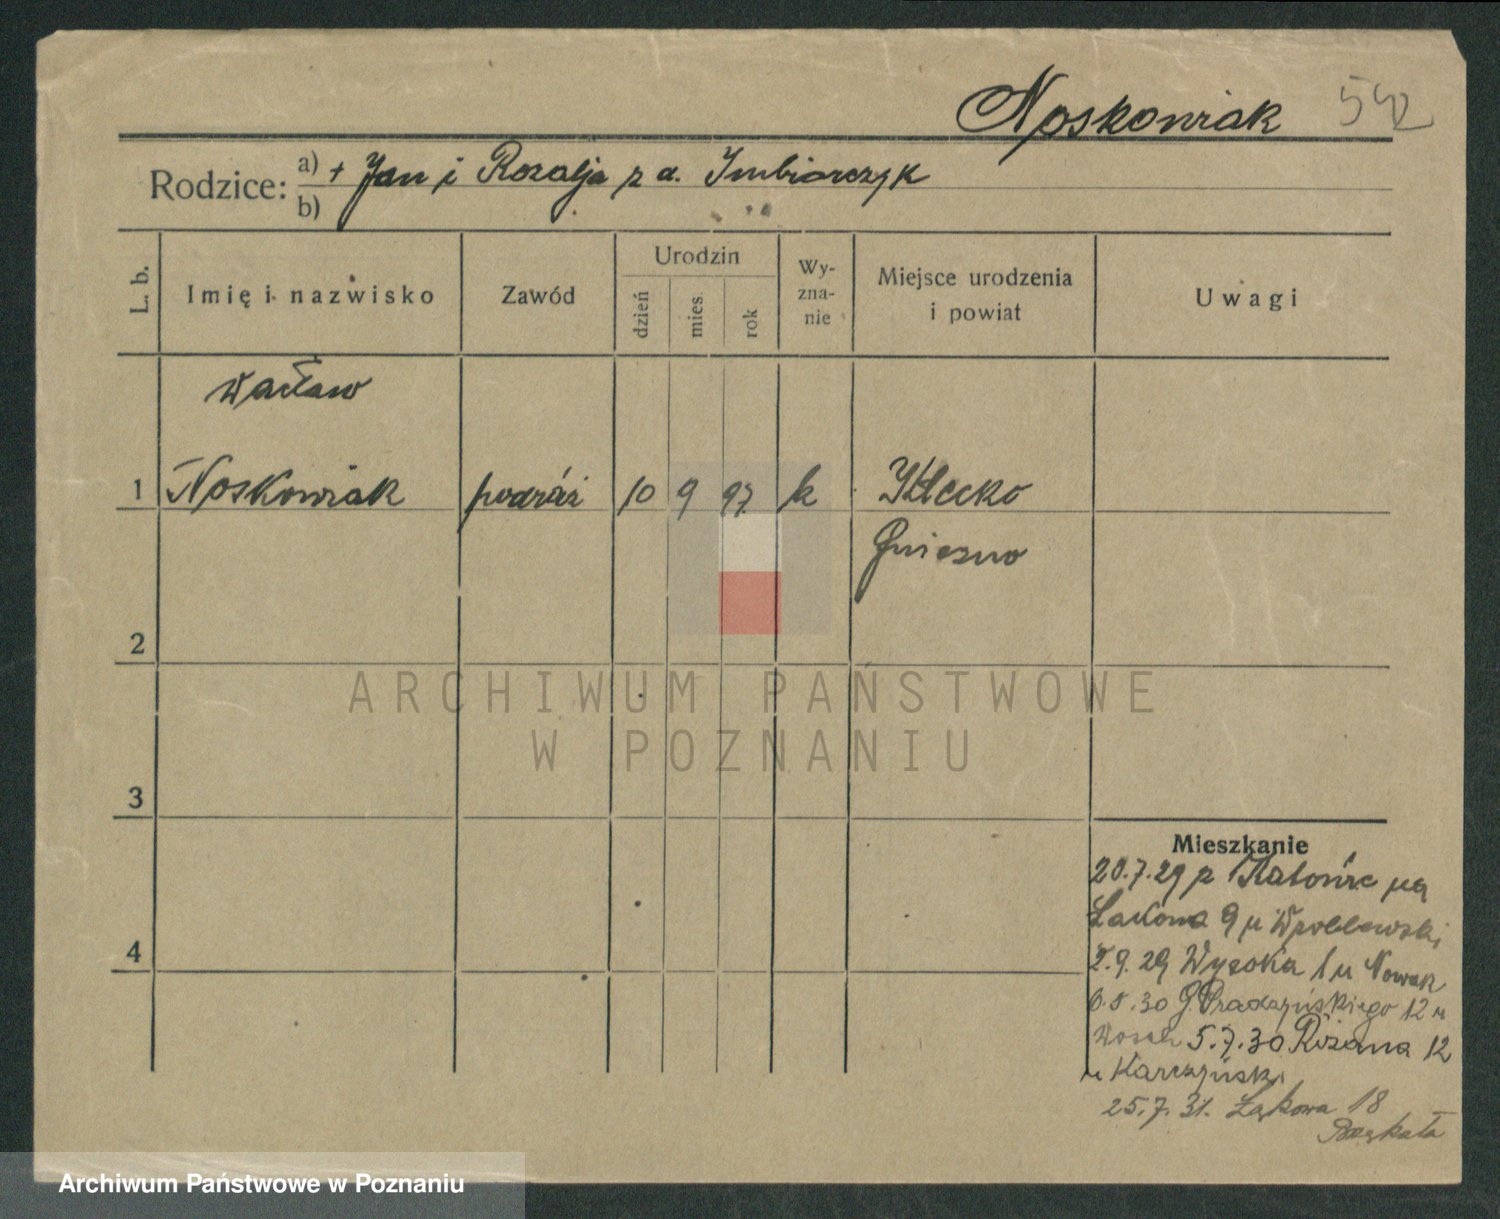 Noskowiak 542
Rodzice: a) + Jan i Rozalja z d. Imbiorczyk
b)
L. b. Imię i nazwisko Zawód Urodzin dzień mies. rok Wy-zna-nie Miejsce urodzenia i powiat Uwagi
Wacław
1 Noskowiak podróż 10 9 97. k Kłecko
Gniezno
2
ARCHIWUM PAŃSTWOWE
W POZNANIU
3
Mieszkanie
20.7.29 z Katowic na
Łąkowa 9 u Wróblewski
4
2.9.29 Wysoka 1 u Nowak
30 G. Prądzyńskiego 12 u
5.7.30 Różana 12
u Karczyński
25.7.31. Łąkowa 18
Archiwum Państwowe w Poznaniu